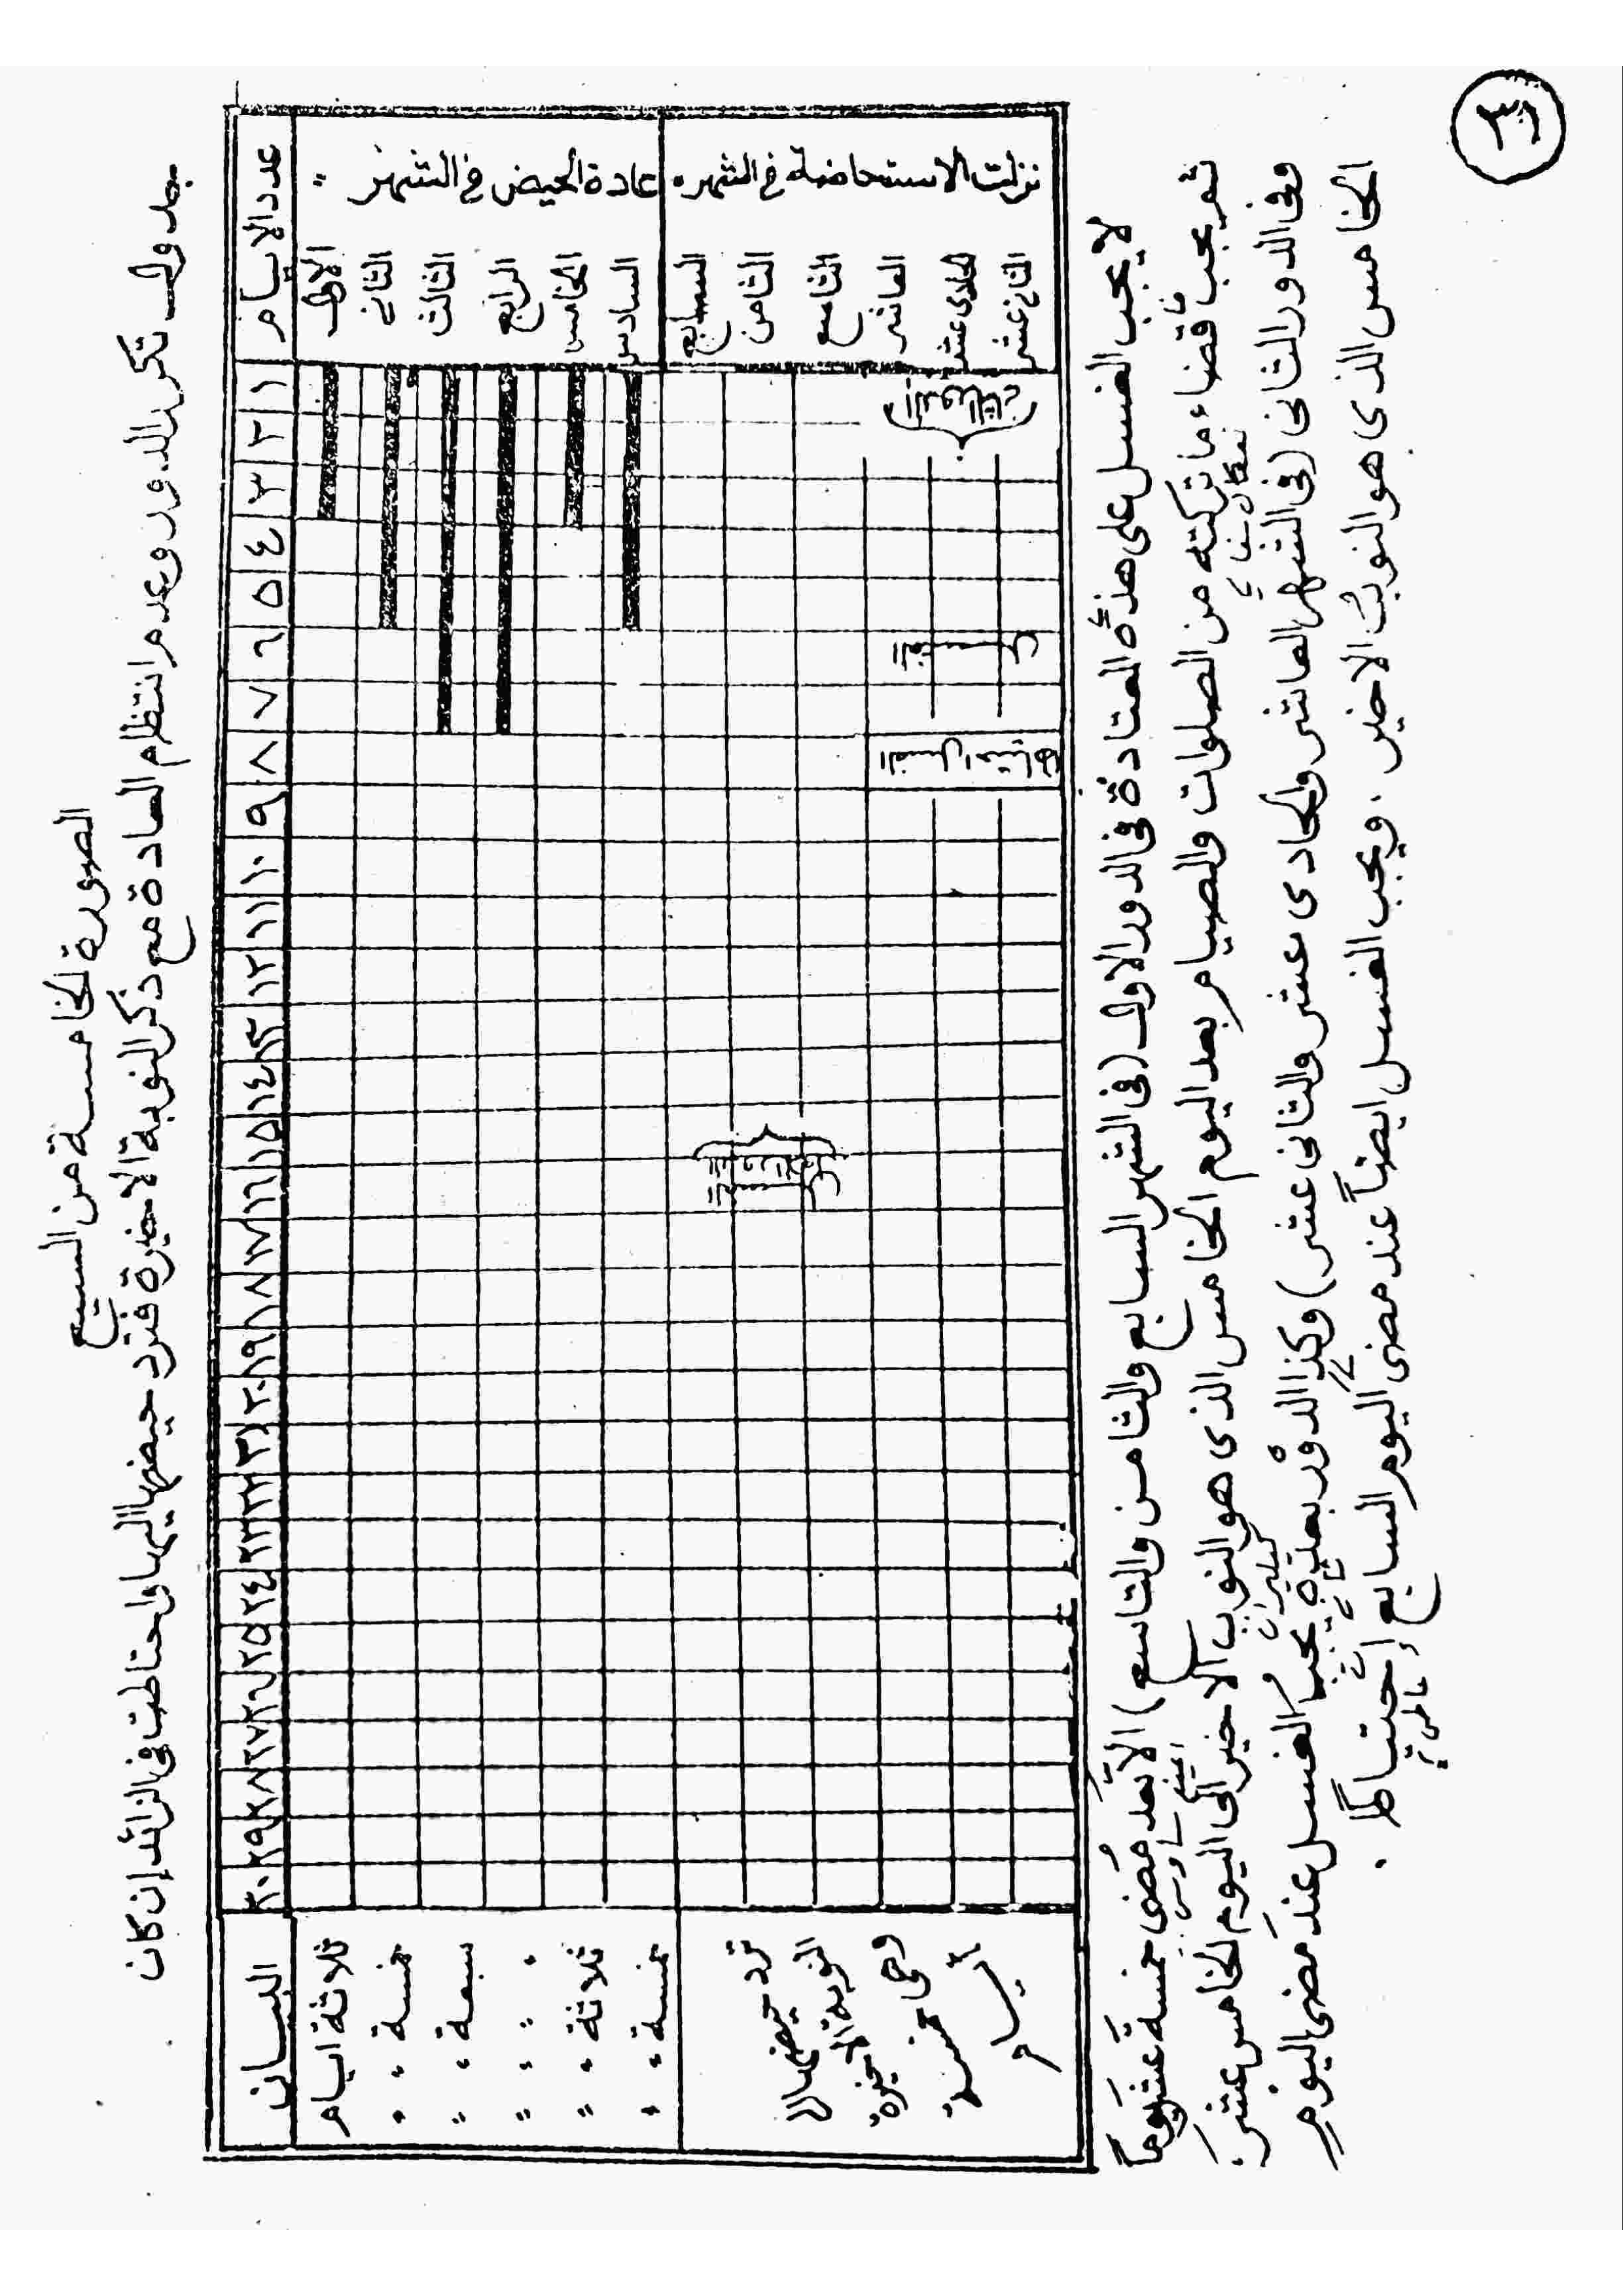 ٣
الصورة الخامسة من السبع
جدول تكرر الدور وعدم انتظام العادة مع ذكر النوبة الاخيرة فترد حيضها اليها واحتاطت في الزائد إن كان
عدد الايام ١ ٢ ٣ ٤ ٥ ٦ ٧ ٨ ٩ ١٠ ١١ ١٢ ١٣ ١٤ ١٥ ١٦ ١٧ ١٨ ١٩ ٢٠ ٢١ ٢٢ ٢٣ ٢٤ ٢٥ ٢٦ ٢٧ ٢٨ ٢٩ ٣٠ البيان
عادة الحيض في الشهر :
الاول ثلاثة ايام
الثاني خمسة ، ،
الثالث سبعة ، ،،
الرابع ، ، ،،
الخامس ثلاثة ، ،،
السادس خمسة ، ،
نزلت الاستحاضة في الشهر
السابع
الثامن
التاسع
العاشر
الحادى عشر
الثانى عشر
ترد حيضها الى
النوبة الاخيرة
وهي خمسة
أيام
لا يجب الغسل على هذه المعتادة في الدور الاول (في الشهر السابع والثامن والتاسع) الا بعد مضى خمسة عشر يوماً
ثم يجب قضاء ما تركته من الصلوات والصيام بعد اليوم الخامس الذى هو النوب الاخير الى اليوم الخامس عشر.
وفى الدور الثانى (فى الشهر العاشر والحادى عشر والثانى عشر) وكذا الدور بعد يجب الغسل عند مضى اليوم
الخامس الذى هو النوب الاخير . ويجب الغسل ايضاً عند مضى اليوم السابع احتياطا .